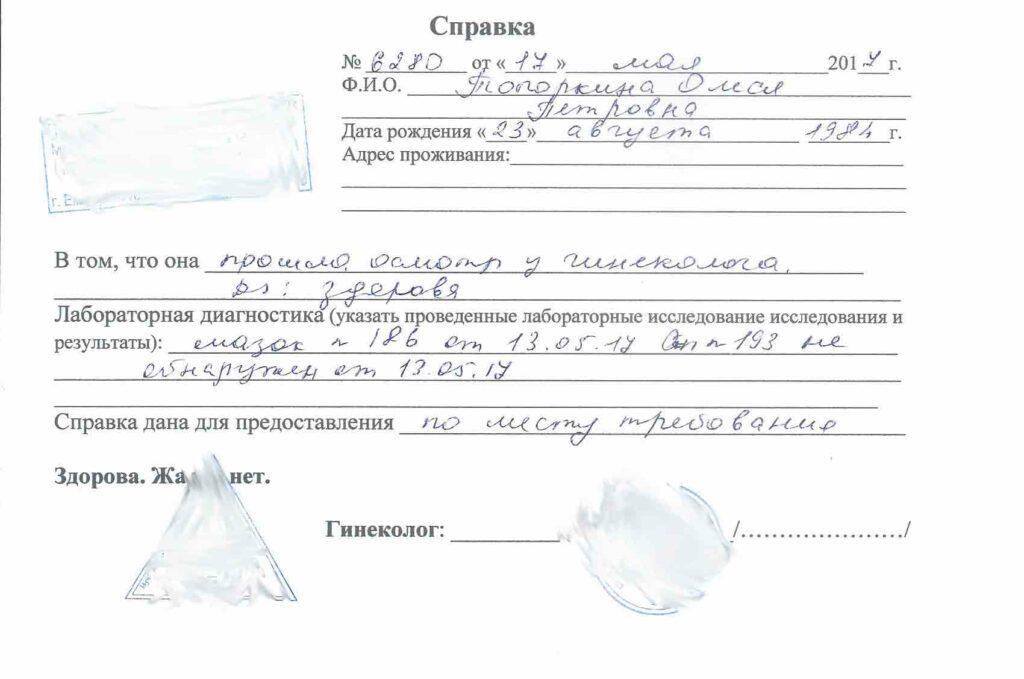 Справка
№ 6280 от «17» мая 2017 г.
Ф.И.О. Топоркина Олеся
Петровна
Дата рождения «23» августа 1984 г.
Адрес проживания:
г. Ек
В том, что она прошла осмотр у гинеколога.
Ds: здорова
Лабораторная диагностика (указать проведенные лабораторные исследование исследования и
результаты): мазок n 186 от 13.05.17 n 193 не
обнаружен от 13.05.17
Справка дана для предоставления по месту требования
Здорова. Жа нет.
Гинеколог: /…………………/